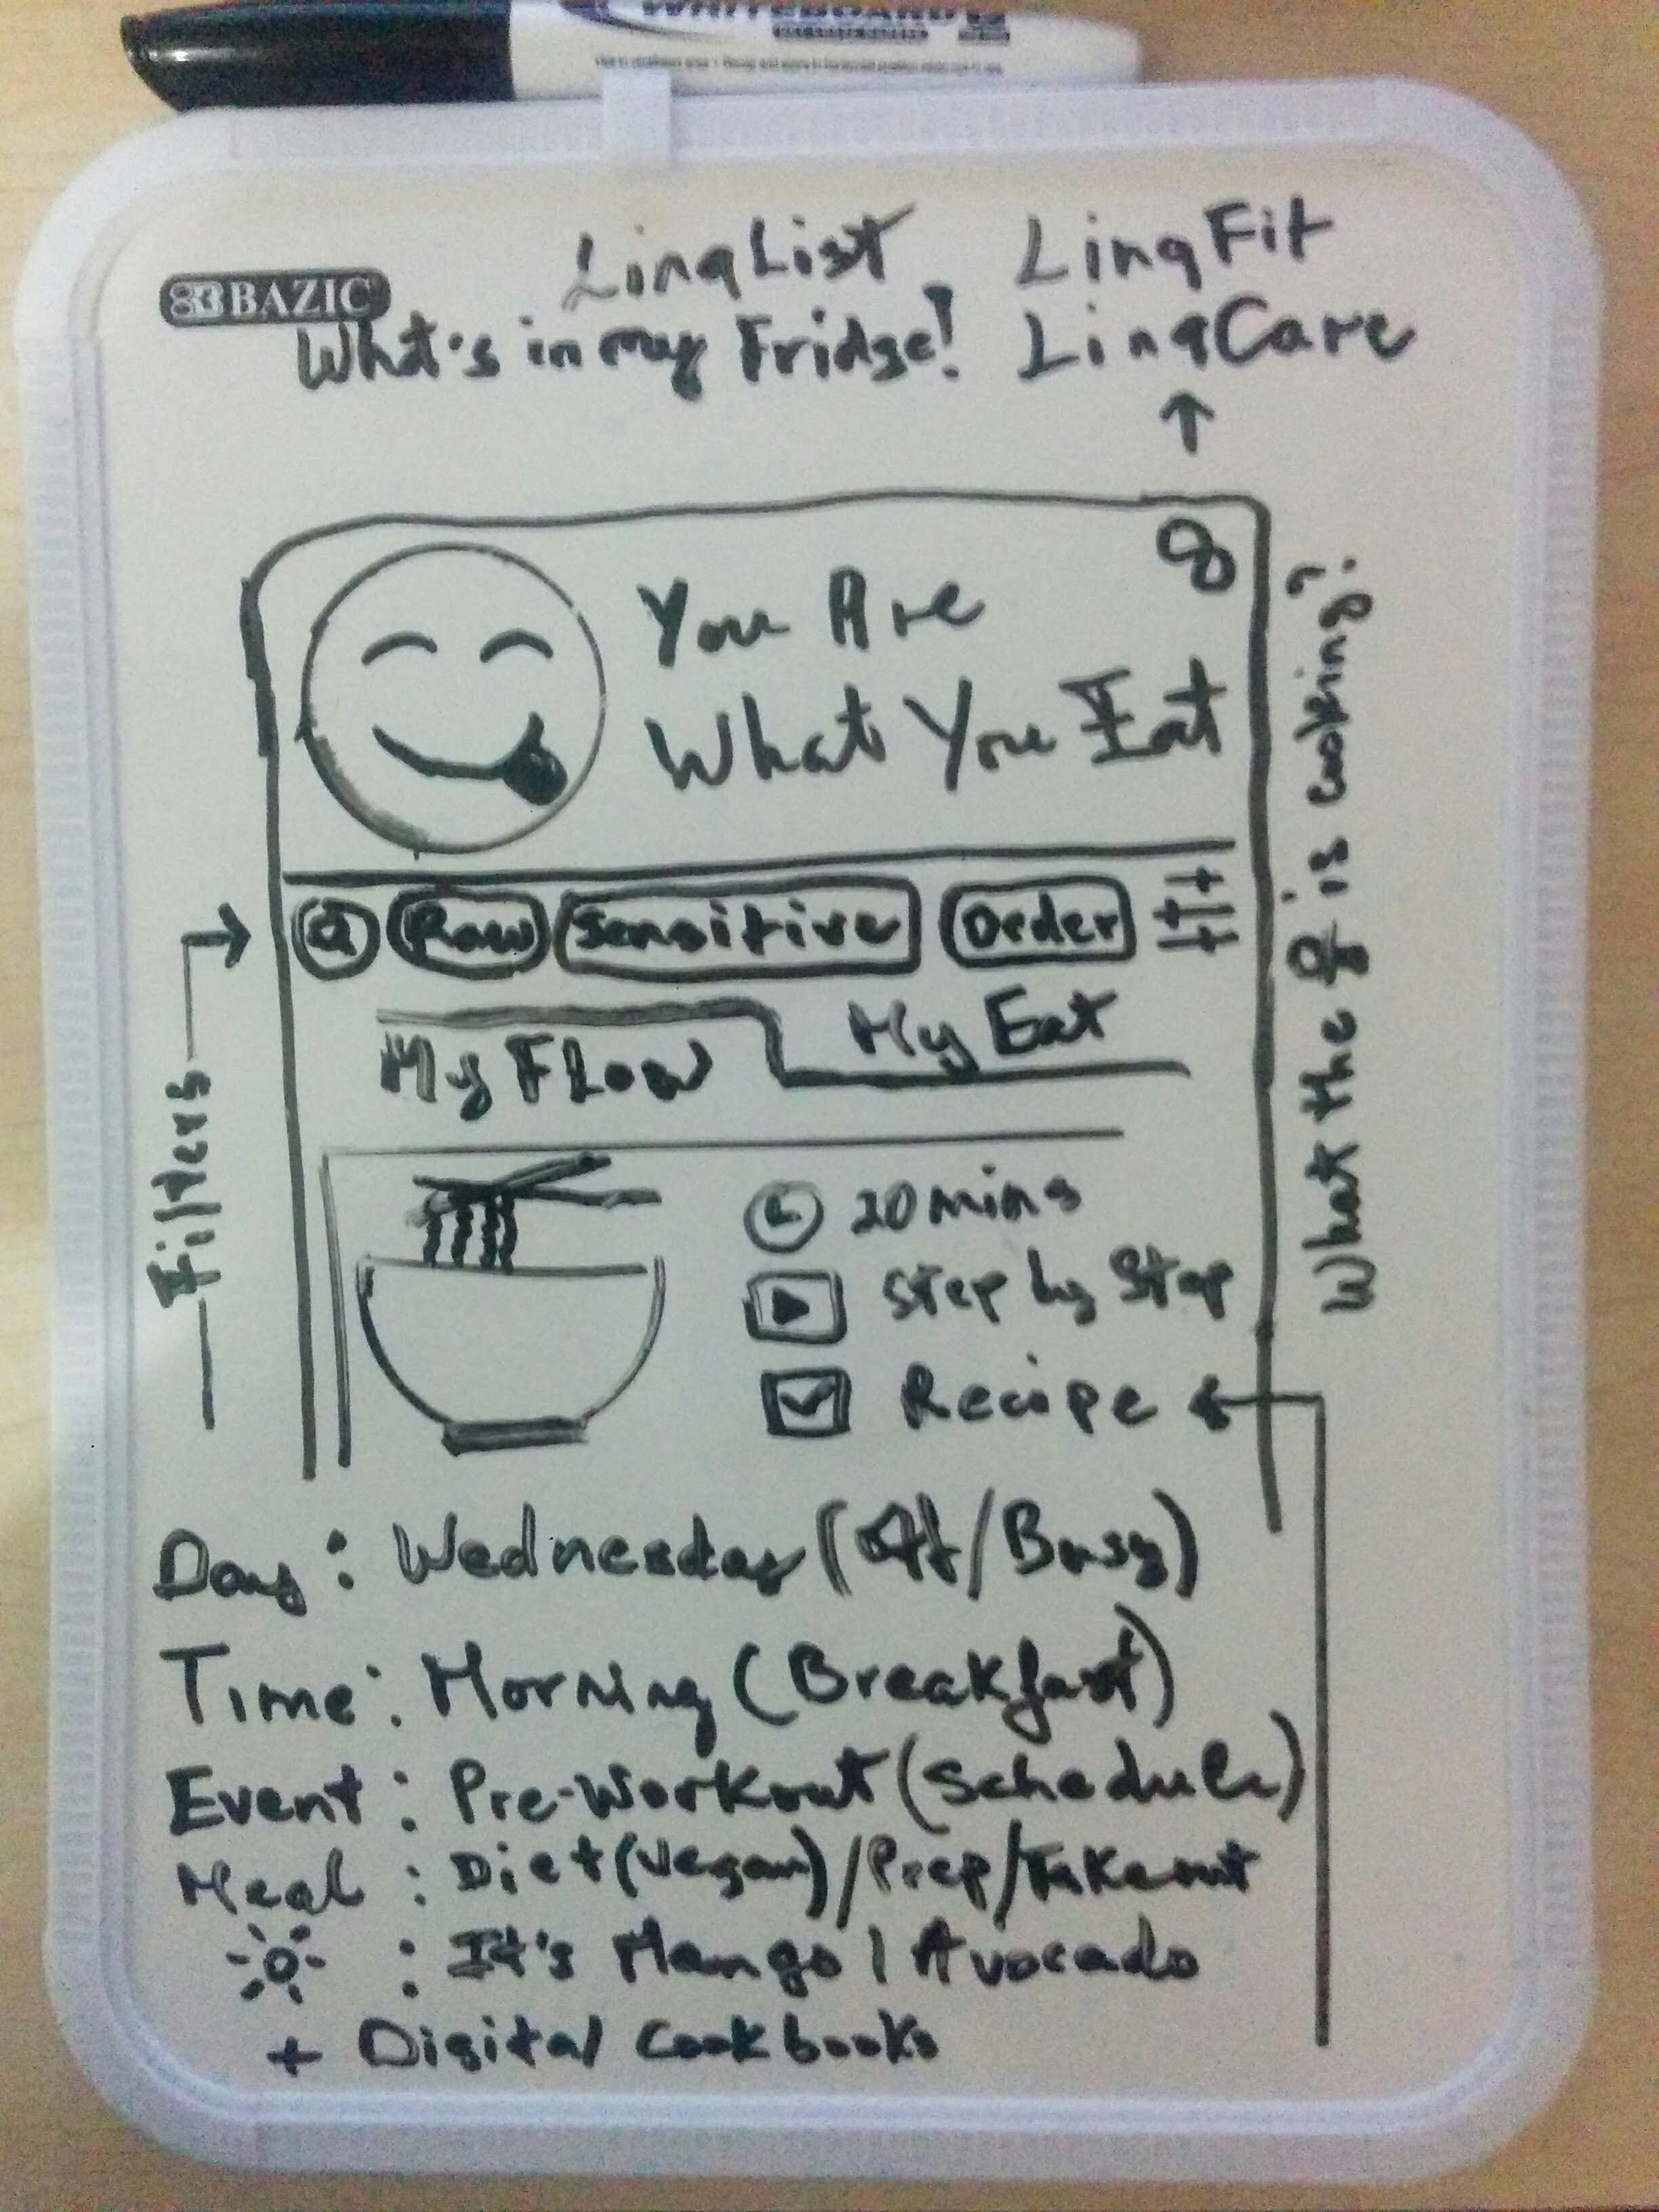 WHITEBOARD
BAZIC
LinqList
What's in my Fridge!
LinqFit
LinqCare
You Are
What You Eat
Filters
Raw
Sensitive
Order
My Flow
My Eat
20 mins
Step by Step
Recipe
What the is cooking?
Day : Wednesday (Off/Busy)
Time : Morning (Breakfast)
Event : Pre-Workout (Schedule)
Meal : Diet (Vegan) / Prep / Takeout
: It's Mango | Avocado
+ Digital Cookbooks